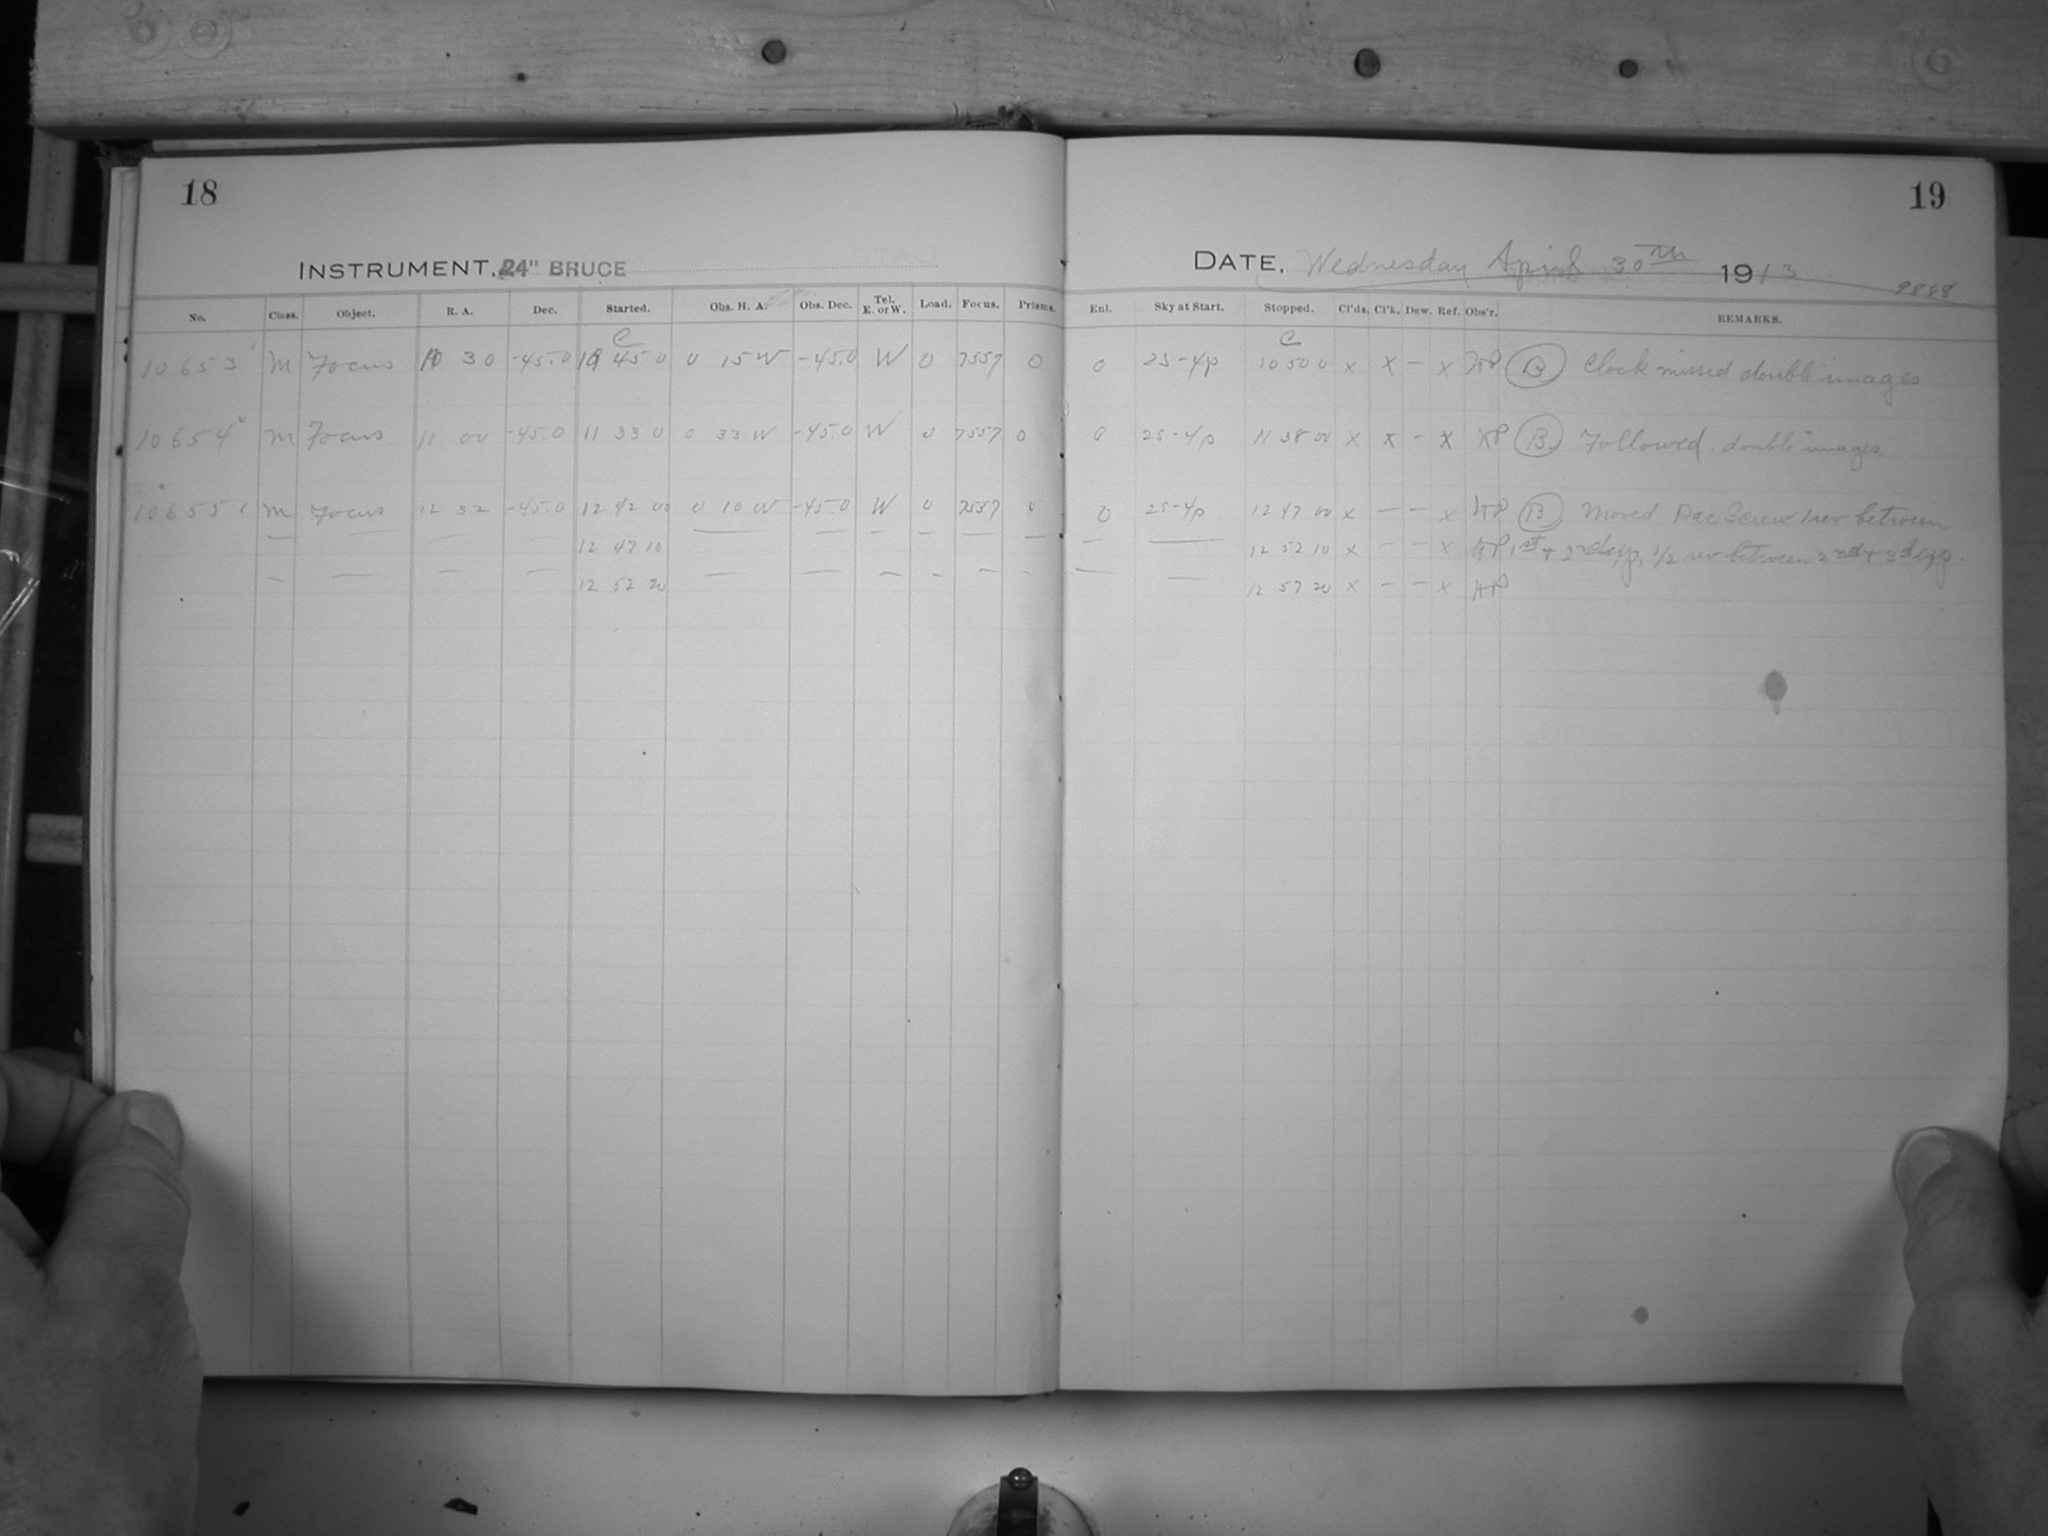 18
INSTRUMENT, 24" BRUCE
No. Class. Object. R. A. Dec. Started. Obs. H. A. Obs. Dec. Tel. E. or W. Load. Focus. Prisms.
C
10653 M Focus 10 30 -45.0 10 45 0 0 15 W -45.0 W 0 7557 0
10654 M Focus 11 00 -45.0 11 33 0 0 33 W -45.0 W 0 7557 0
10655 M Focus 12 32 -45.0 12 42 00 0 10 W -45.0 W 0 7557 0
— — — — 12 47 10 — — — — — —
— — — — 12 52 20 — — — — — —
19
DATE, Wednesday April 30th 1913
9888
Enl. Sky at Start. Stopped. Cl'ds. Cl'k. Dew. Ref. Obs'r. REMARKS.
C
0 2S-4p 10 50 0 x x — x (B) Clock missed double images
0 2S-4p 11 38 00 x x - x (B) Followed double images.
0 2S-4p 12 47 00 x — — x (B) Moved Dec Screw 1 rev between
— — 12 52 10 x — — x 1st + 2nd exp, 1/2 rev between 2nd + 3d exp.
— — 12 57 20 x — — x